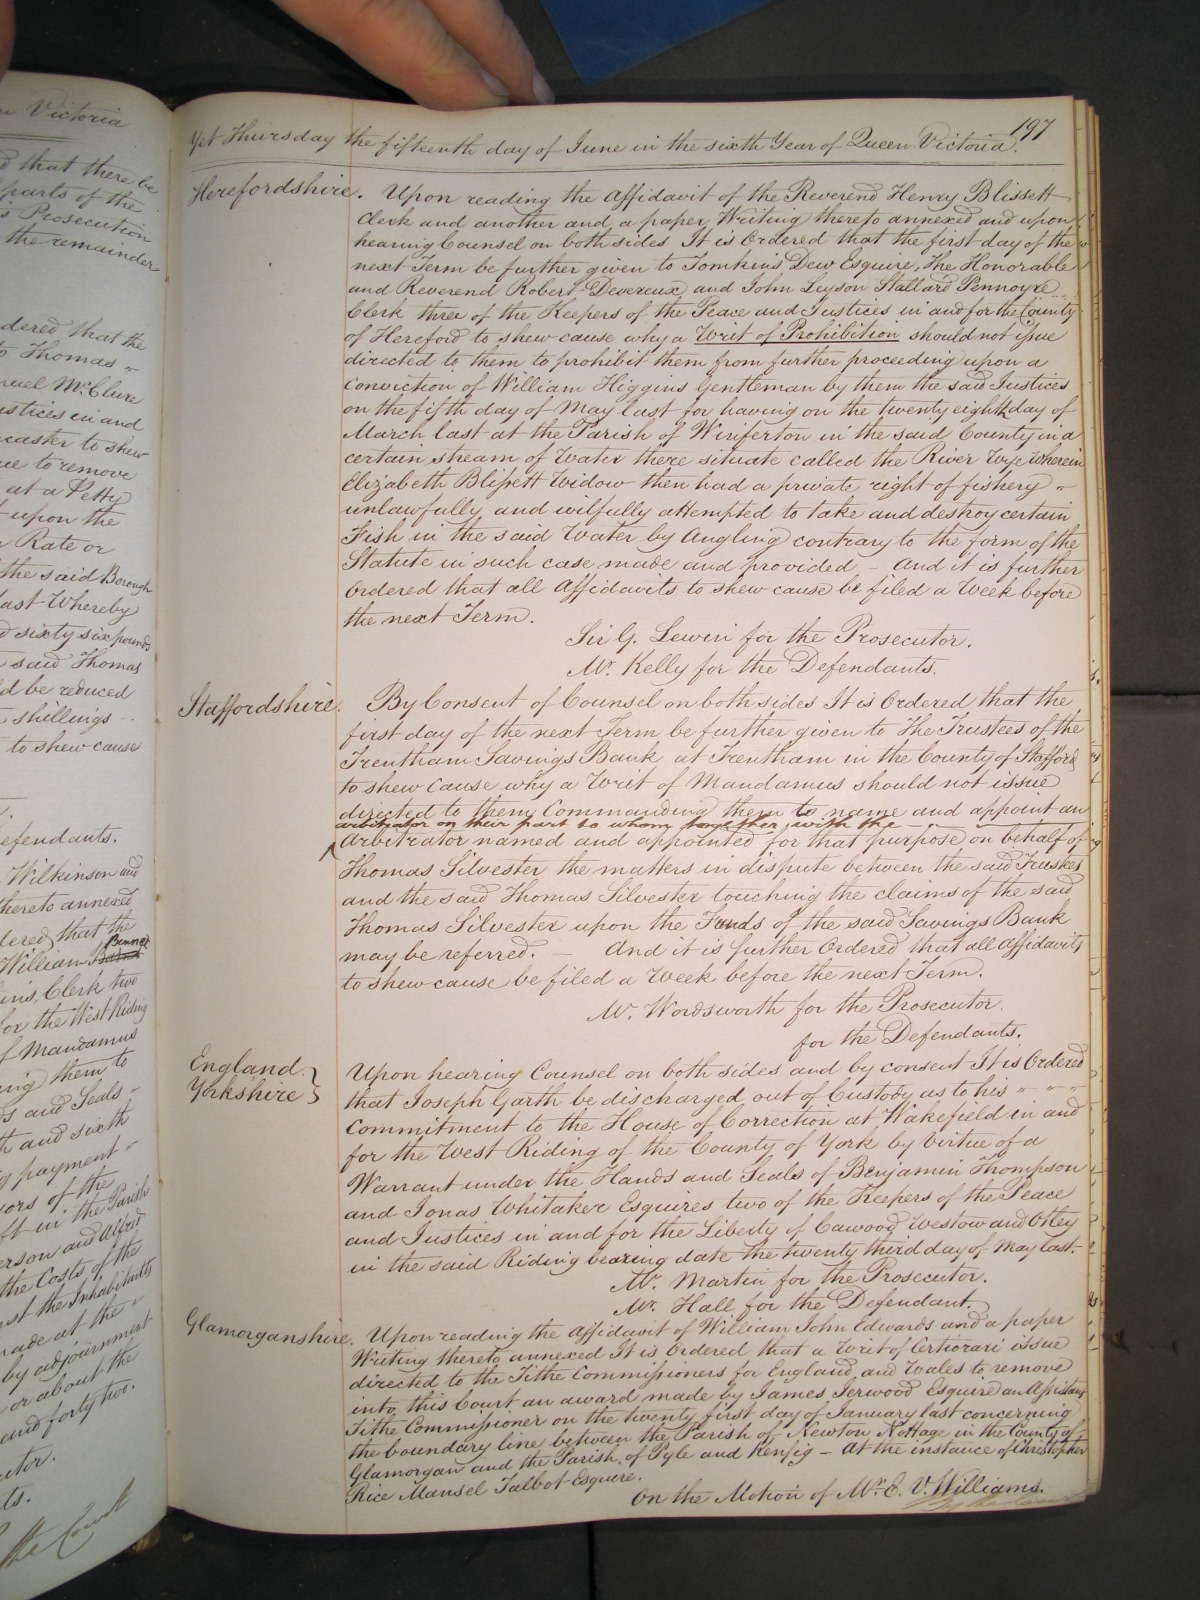 n Victoria
d that there be
parts of the
s Prosecution
the remainder
dered that the
to Thomas
uel McClure
ustices in and
caster to shew
ue to remove
at a Petty
upon the
Rate or
the said Borough
last Whereby
d sixty six pounds
said Thomas
ld be reduced
shillings
to shew cause
efendants.
Wilkinson and
thereto annexed
dered that the
Bennet
William
ins, Clerk two
for the West Riding
f Mandamus
ing them to
ds and Seals
th and sixth
g payment
ors of the
ft in the Parish
erson and Alfred
the Costs of the
st the Inhabitants
made at the
by adjournment
or about the
and forty two.
utor.
ts.
the Court
197
Yet Thursday the fifteenth day of June in the sixth Year of Queen Victoria.
Herefordshire. Upon reading the Affidavit of the Reverend Henry Blissett
Clerk and another and a paper Writing thereto annexed and upon
hearing Counsel on both sides It is Ordered that the first day of the
next Term be further given to Tomkins Dew Esquire, The Honorable
and Reverend Robert Devereux and John Leyson Stallard Pennoyre
Clerk three of the Keepers of the Peace and Justices in and for the County
of Hereford to shew cause why a Writ of Prohibition should not issue
directed to them to prohibit them from further proceeding upon a
Conviction of William Higgins Gentleman by them the said Justices
on the fifth day of May last for having on the twenty eighth day of
March last at the Parish of Winferton in the said County in a
certain stream of Water there situate called the River Wye wherein
Elizabeth Blissett Widow then had a private right of fishery
unlawfully and wilfully attempted to take and destroy certain
Fish in the said Water by Angling contrary to the form of the
Statute in such case made and provided – And it is further
Ordered that all Affidavits to shew cause be filed a Week before
the next Term.
Sir G. Lewin for the Prosecutor.
Mr. Kelly for the Defendants.
Staffordshire. By Consent of Counsel on both sides It is Ordered that the
first day of the next Term be further given to The Trustees of the
Trentham Savings Bank at Trentham in the County of Stafford
to shew cause why a Writ of Mandamus should not issue
directed to them Commanding them to name and appoint an
arbitrator on their part to whom together with the
Arbitrator named and appointed for that purpose on behalf of
Thomas Silvester the matters in dispute between the said Trustees
and the said Thomas Silvester touching the claims of the said
Thomas Silvester upon the Funds of the said Savings Bank
may be referred. – And it is further Ordered that all Affidavits
to shew cause be filed a Week before the next Term.
Mr. Wordsworth for the Prosecutor.
for the Defendants.
England
Yorkshire } Upon hearing Counsel on both sides and by consent It is Ordered
that Joseph Garth be discharged out of Custody as to his
Commitment to the House of Correction at Wakefield in and
for the West Riding of the County of York by Virtue of a
Warrant under the Hands and Seals of Benjamin Thompson
and Jonas Whitaker Esquires two of the Keepers of the Peace
and Justices in and for the Liberty of Cawood Wistow and Otley
in the said Riding bearing date the twenty third day of May last.
Mr. Martin for the Prosecutor.
Mr. Hall for the Defendant.
Glamorganshire. Upon reading the Affidavit of William John Edwards and a paper
Writing thereto annexed It is Ordered that a Writ of Certiorari issue
directed to the Tithe Commissioners for England and Wales to remove
into this Court an award made by James Jerwood Esquire an Assistant
Tithe Commissioner on the twenty first day of January last concerning
the boundary line between the Parish of Newton Nottage in the County of
Glamorgan and the Parish of Pyle and Kenfig – At the instance of Christopher
Rice Mansel Talbot Esquire.
On the Motion of Mr. E. V. Williams.